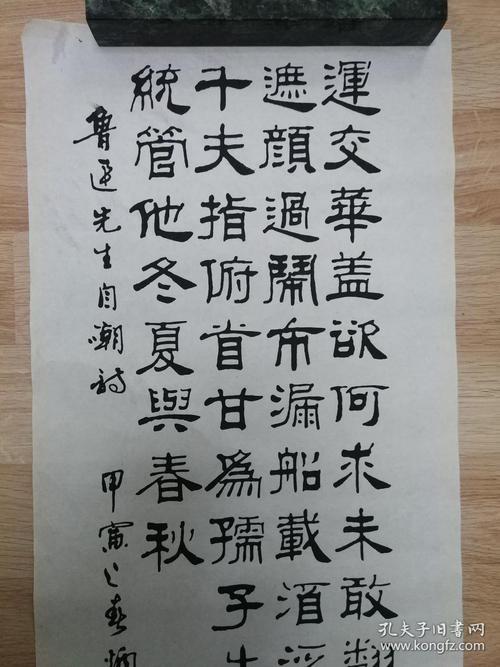 運交華盖欲何求未敢翻
遮顔過鬧市漏船載酒泛
千夫指俯首甘爲孺子牛
統管他冬夏與春秋
魯迅先生自嘲詩 甲寅之春
孔夫子旧书网
www.kongfz.com